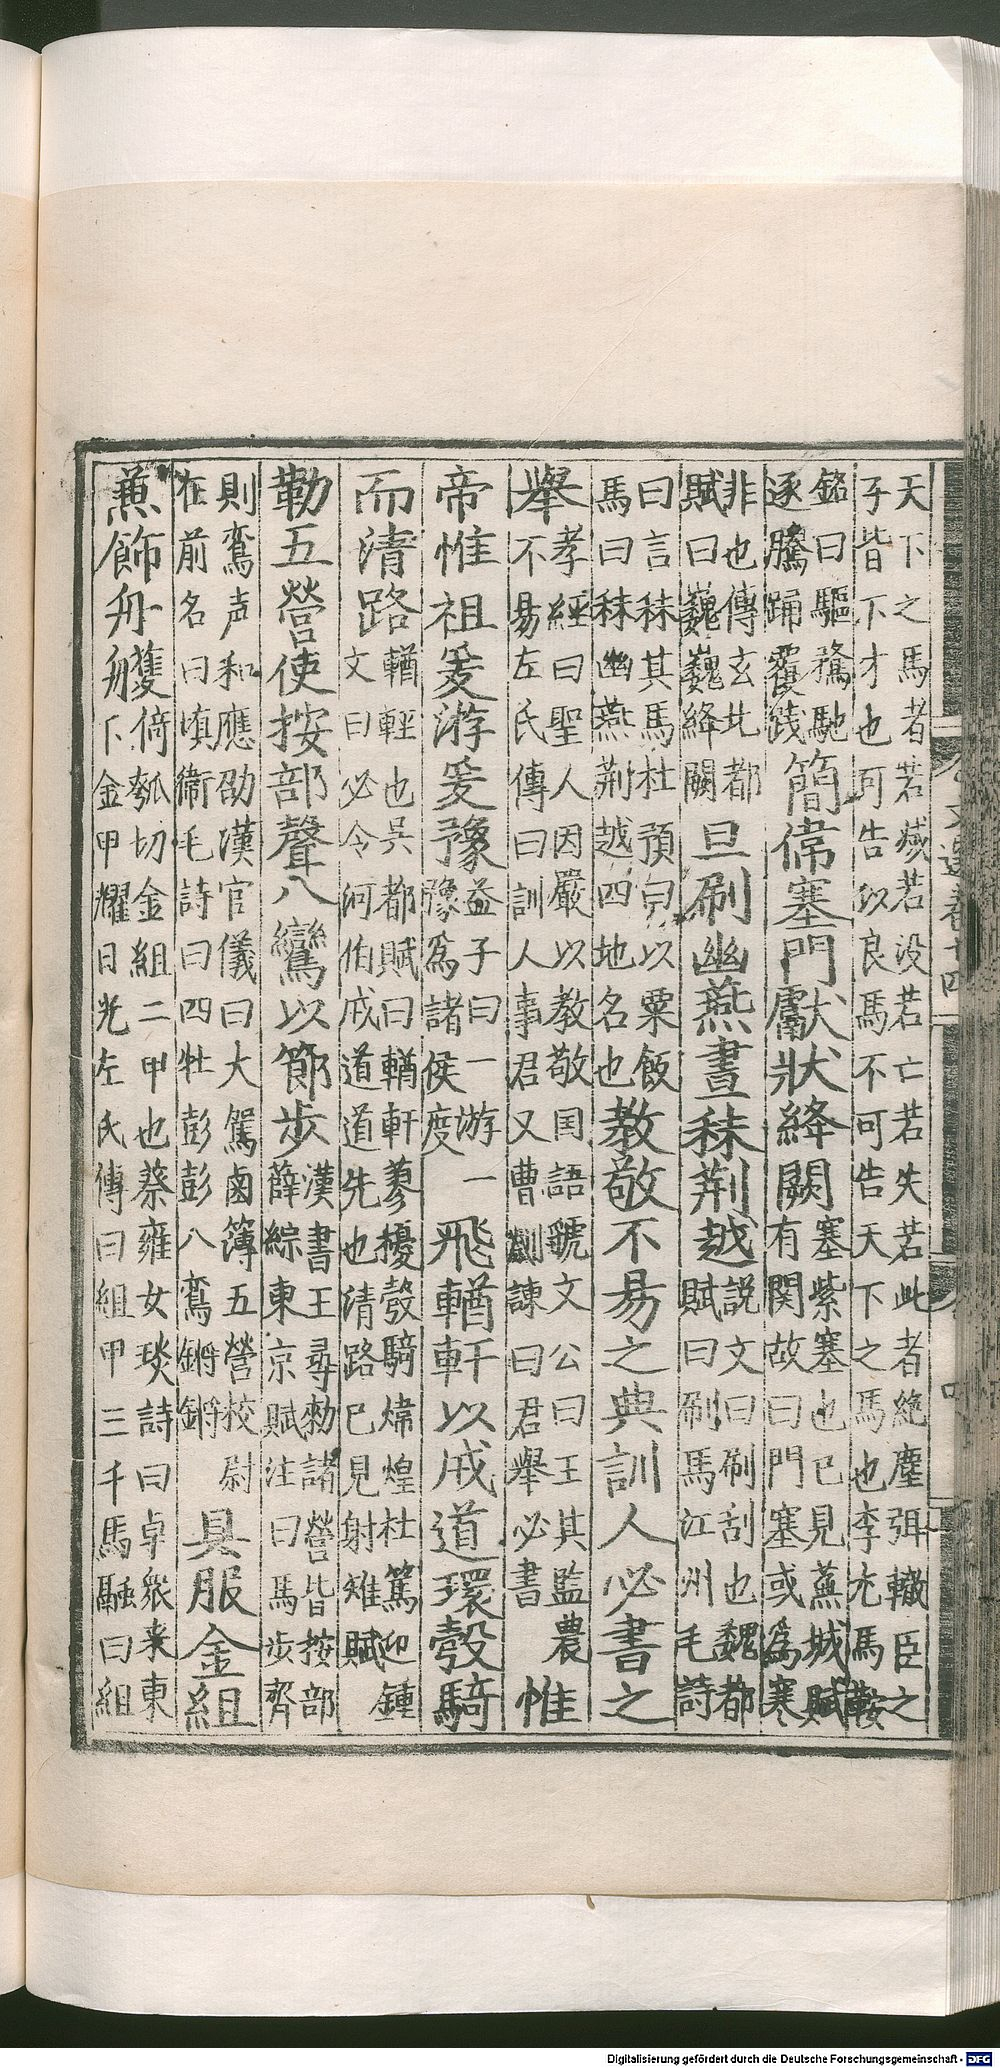 天下之馬者若滅若没若亡若失若此者絶塵弭轍臣之
子皆下才也可告以良馬不可告天下之馬也李尤馬鞍
銘曰驅騖馳
逐騰踊覆踐
簡偉塞門獻狀絳闕
塞紫塞也已見蕪城賦
有関故曰門塞或為寒
非也傳玄北都
賦曰巍巍絳闕
旦刷幽燕晝秣荆越
説文曰刷刮也魏都
賦曰刷馬江州毛詩
曰言秣其馬杜預曰以粟飯
馬曰秣幽燕荆越四地名也
教敬不易之典訓人必書之
舉
孝經曰聖人因嚴以教敬国語虢文公曰王其監農
不易左氏傳曰訓人事君又曹劌諫曰君舉必書
惟
帝惟祖爰游爰豫
益子曰一游一
豫為諸侯度
飛輶軒以戒道環彀騎
而清路
輶輕也吳都賦曰輶軒蓼擾彀騎煒煌杜篤迎鍾
文曰必令河伯戒道道先也清路已見射雉賦
勒五營使按部聲八鸞以節步
漢書王尋勑諸營皆按部
薛綜東京賦注曰馬步齊
則鸞声和應劭漢官儀曰大駕鹵簿五營校尉
在前名曰填衛毛詩曰四牡彭彭八鸞鏘鏘
具服金組
蒹飾丹
雘倚瓠切金組二甲也蔡雍女琰詩曰卓衆来東
下金甲耀日光左氏傳曰組甲三千馬融曰組
Digitalisierung gefördert durch die Deutsche Forschungsgemeinschaft - DFG